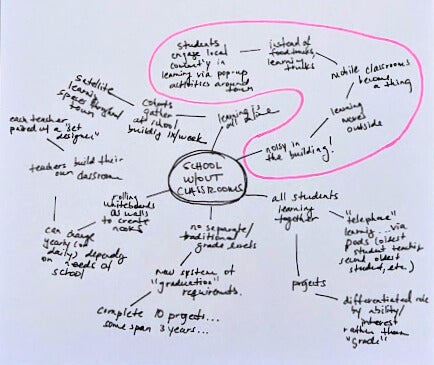 students
engage local
community in
learning via pop-up
activities around
town
instead of
food trucks,
learning
trucks
mobile classrooms
become
a thing
learning
moves
outside
noisy in
the building!
learning is
all online
cohorts
gather
at school
building 1x/week
satellite
learning
spaces throughout
town
SCHOOL
W/OUT
CLASSROOMS
each teacher
paired w/ a "set
designer"
teachers build their
own classroom
rolling
whiteboards
as walls
to create
nooks
can change
yearly (or
daily) depending
on needs of
school
no separate/
traditional
grade levels
new system of
"graduation"
requirements.
complete 10 projects...
some span 3 years...
all students
learning
together
"telephone"
learning...via
pods (oldest
student teaching
second oldest
student, etc.)
projects
differentiated role
by ability/
interest
rather than
"grade"